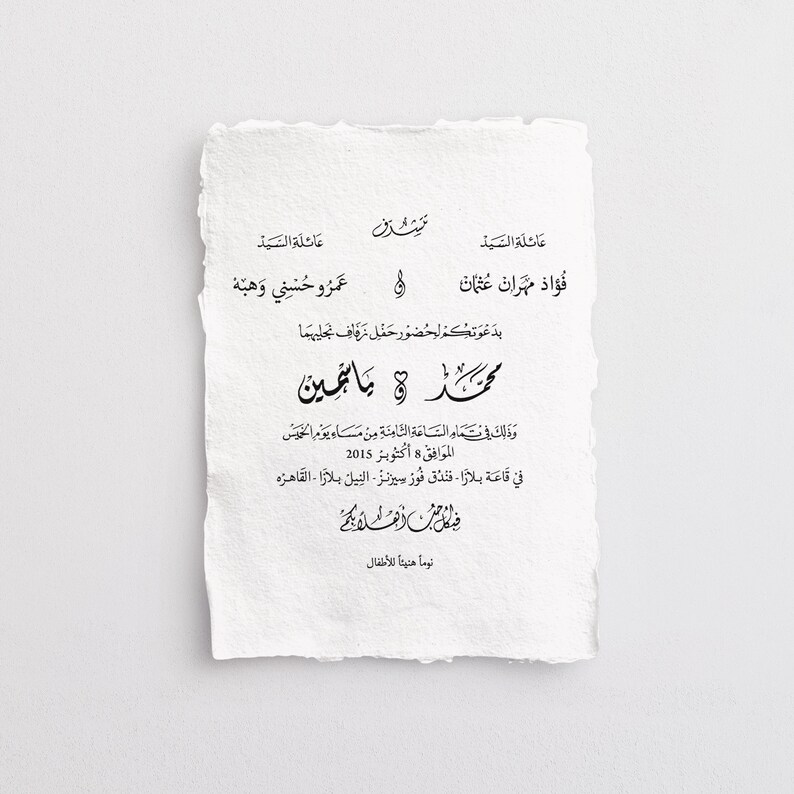 تتشرف
عائلة السيد عائلة السيد
فؤاد مهران عثمان و عمرو حسني وهبه
بدعوتكم لحضور حفل زفاف نجليهما
محمد و ياسمين
وذلك في تمام الساعة الثامنة من مساء يوم الخميس
الموافق 8 أكتوبر 2015
في قاعة بلازا - فندق فور سيزنز - النيل بلازا - القاهره
فبكل حب أهلا بكم
نوماً هنيئاً للأطفال